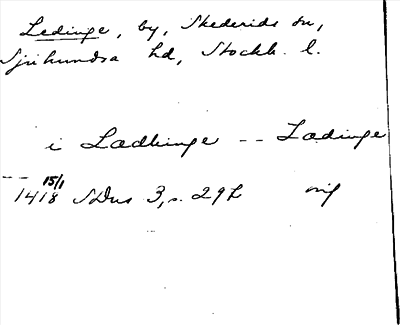 Ledinge, by, Skederids sn,
Sjuhundra hd, Stockh. l.
i Ladhinge -- Ladinge
--
15/1
1418 SDns 3, s. 292 orig